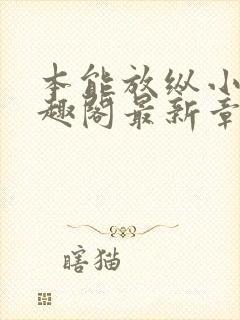 本能放纵小
趣阁最新章
瞎猫